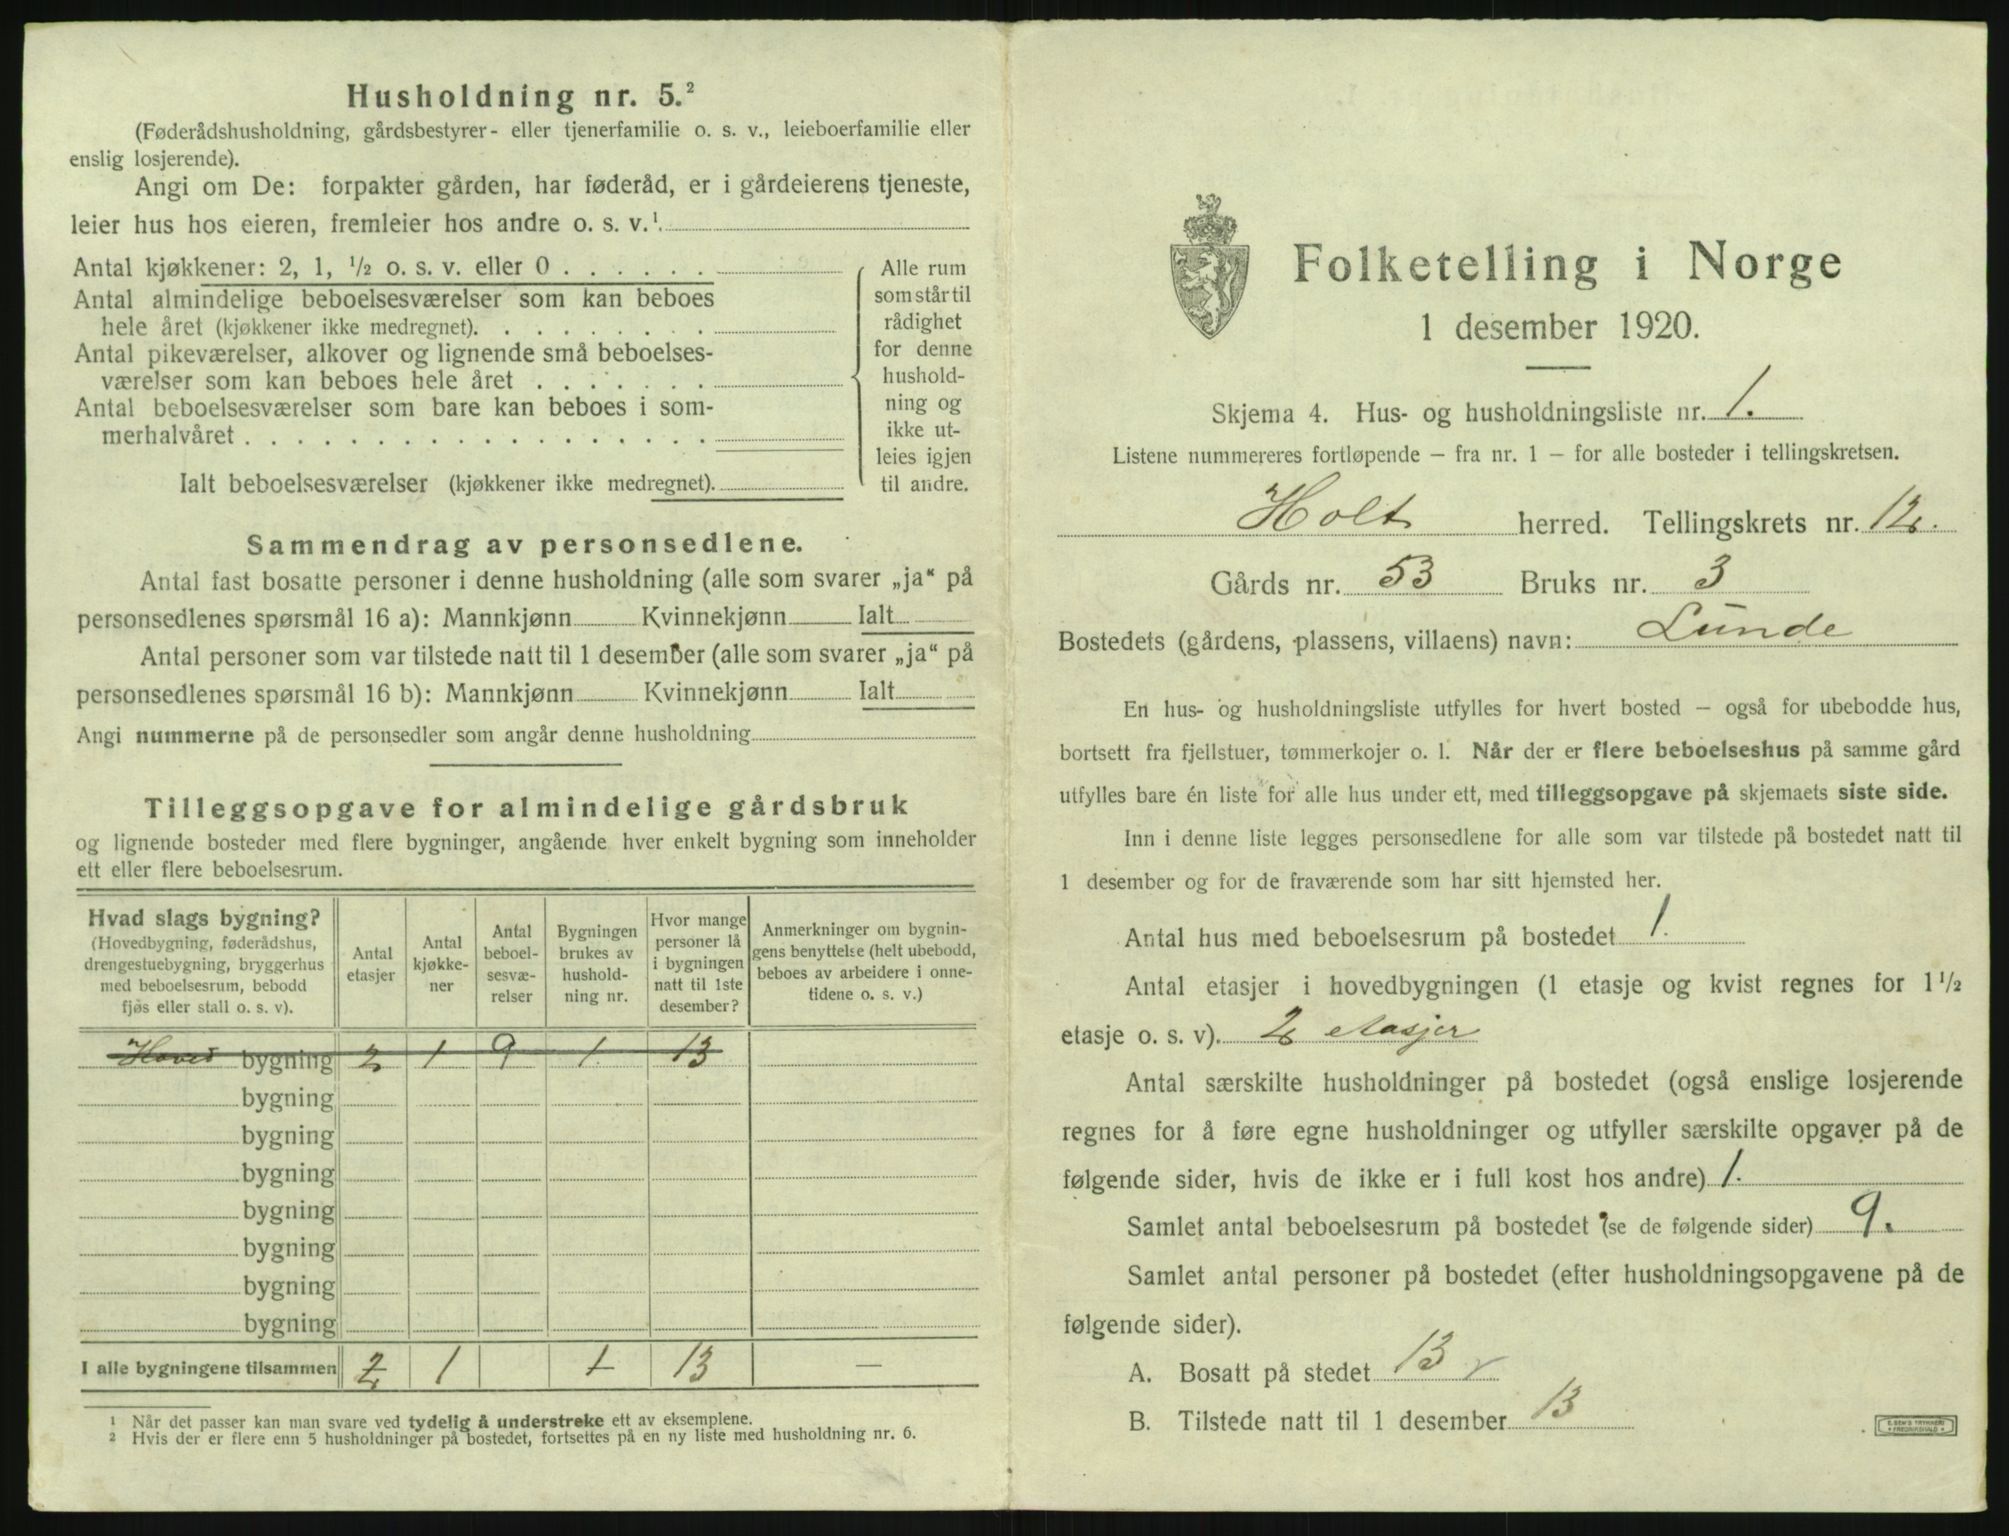 Husholdning nr. 5.²
(Føderådshusholdning, gårdsbestyrer- eller tjenerfamilie o. s. v., leieboerfamilie eller
enslig losjerende).
Angi om De: forpakter gården, har føderåd, er i gårdeierens tjeneste,
leier hus hos eieren, fremleier hos andre o. s. v.¹.
Antal kjøkkener: 2, 1, ½ o. s. v. eller 0 . . . . . .
Antal almindelige beboelsesværelser som kan beboes
hele året (kjøkkener ikke medregnet). . . . . . . . .
Antal pikeværelser, alkover og lignende små beboelses-
værelser som kan beboes hele året . . . . . . .
Antal beboelsesværelser som bare kan beboes i som-
merhalvåret . . . . . . . . . . . . . . . . . .
Ialt beboelsesværelser (kjøkkener ikke medregnet).
Alle rum
som står til
rådighet
for denne
hushold-
ning og
ikke ut-
leies igjen
til andre.
Sammendrag av personsedlene.
Antal fast bosatte personer i denne husholdning (alle som svarer „ja“ på
personsedlenes spørsmål 16 a): Mannkjønn Kvinnekjønn Ialt
Antal personer som var tilstede natt til 1 desember (alle som svarer „ja“ på
personsedlenes spørsmål 16 b): Mannkjønn Kvinnekjønn Ialt
Angi nummerne på de personsedler som angår denne husholdning
Tilleggsopgave for almindelige gårdsbruk
og lignende bosteder med flere bygninger, angående hver enkelt bygning som inneholder
ett eller flere beboelsesrum.
Hvad slags bygning?
(Hovedbygning, føderådshus,
drengestuebygning, bryggerhus
med beboelsesrum, bebodd
fjøs eller stall o. s. v).
Antal
etasjer
Antal
kjøkke-
ner
Antal
beboel-
sesvæ-
relser
Bygningen
brukes av
hushold-
ning nr.
Hvor mange
personer lå
i bygningen
natt til 1ste
desember?
Anmerkninger om bygnin-
gens benyttelse (helt ubebodd,
beboes av arbeidere i onne-
tidene o. s. v.)
Hoved bygning 2 1 9 1. 13
bygning
bygning
bygning
bygning
bygning
bygning
bygning
I alle bygningene tilsammen 2 1 1 13 —
¹ Når det passer kan man svare ved tydelig å understreke ett av eksemplene.
² Hvis der er flere enn 5 husholdninger på bostedet, fortsettes på en ny liste med husholdning nr. 6.
Folketelling i Norge
1 desember 1920.
Skjema 4. Hus- og husholdningsliste nr. 1.
Listene nummereres fortløpende – fra nr. 1 – for alle bosteder i tellingskretsen.
Holt herred. Tellingskrets nr. 12.
Gårds nr. 53 Bruks nr. 3
Bostedets (gårdens, plassens, villaens) navn: Lunde
En hus- og husholdningsliste utfylles for hvert bosted – også for ubebodde hus,
bortsett fra fjellstuer, tømmerkojer o. l. Når der er flere beboelseshus på samme gård
utfylles bare én liste for alle hus under ett, med tilleggsopgave på skjemaets siste side.
Inn i denne liste legges personsedlene for alle som var tilstede på bostedet natt til
1 desember og for de fraværende som har sitt hjemsted her.
Antal hus med beboelsesrum på bostedet 1.
Antal etasjer i hovedbygningen (1 etasje og kvist regnes for 1½
etasje o. s. v). 2 etasjer
Antal særskilte husholdninger på bostedet (også enslige losjerende
regnes for å føre egne husholdninger og utfyller særskilte opgaver på de
følgende sider, hvis de ikke er i full kost hos andre) 1.
Samlet antal beboelsesrum på bostedet (se de følgende sider) 9.
Samlet antal personer på bostedet (efter husholdningsopgavene på de
følgende sider).
A. Bosatt på stedet 13
B. Tilstede natt til 1 desember 13
E. SEM'S TRYKKERI
FREDRIKSHALD